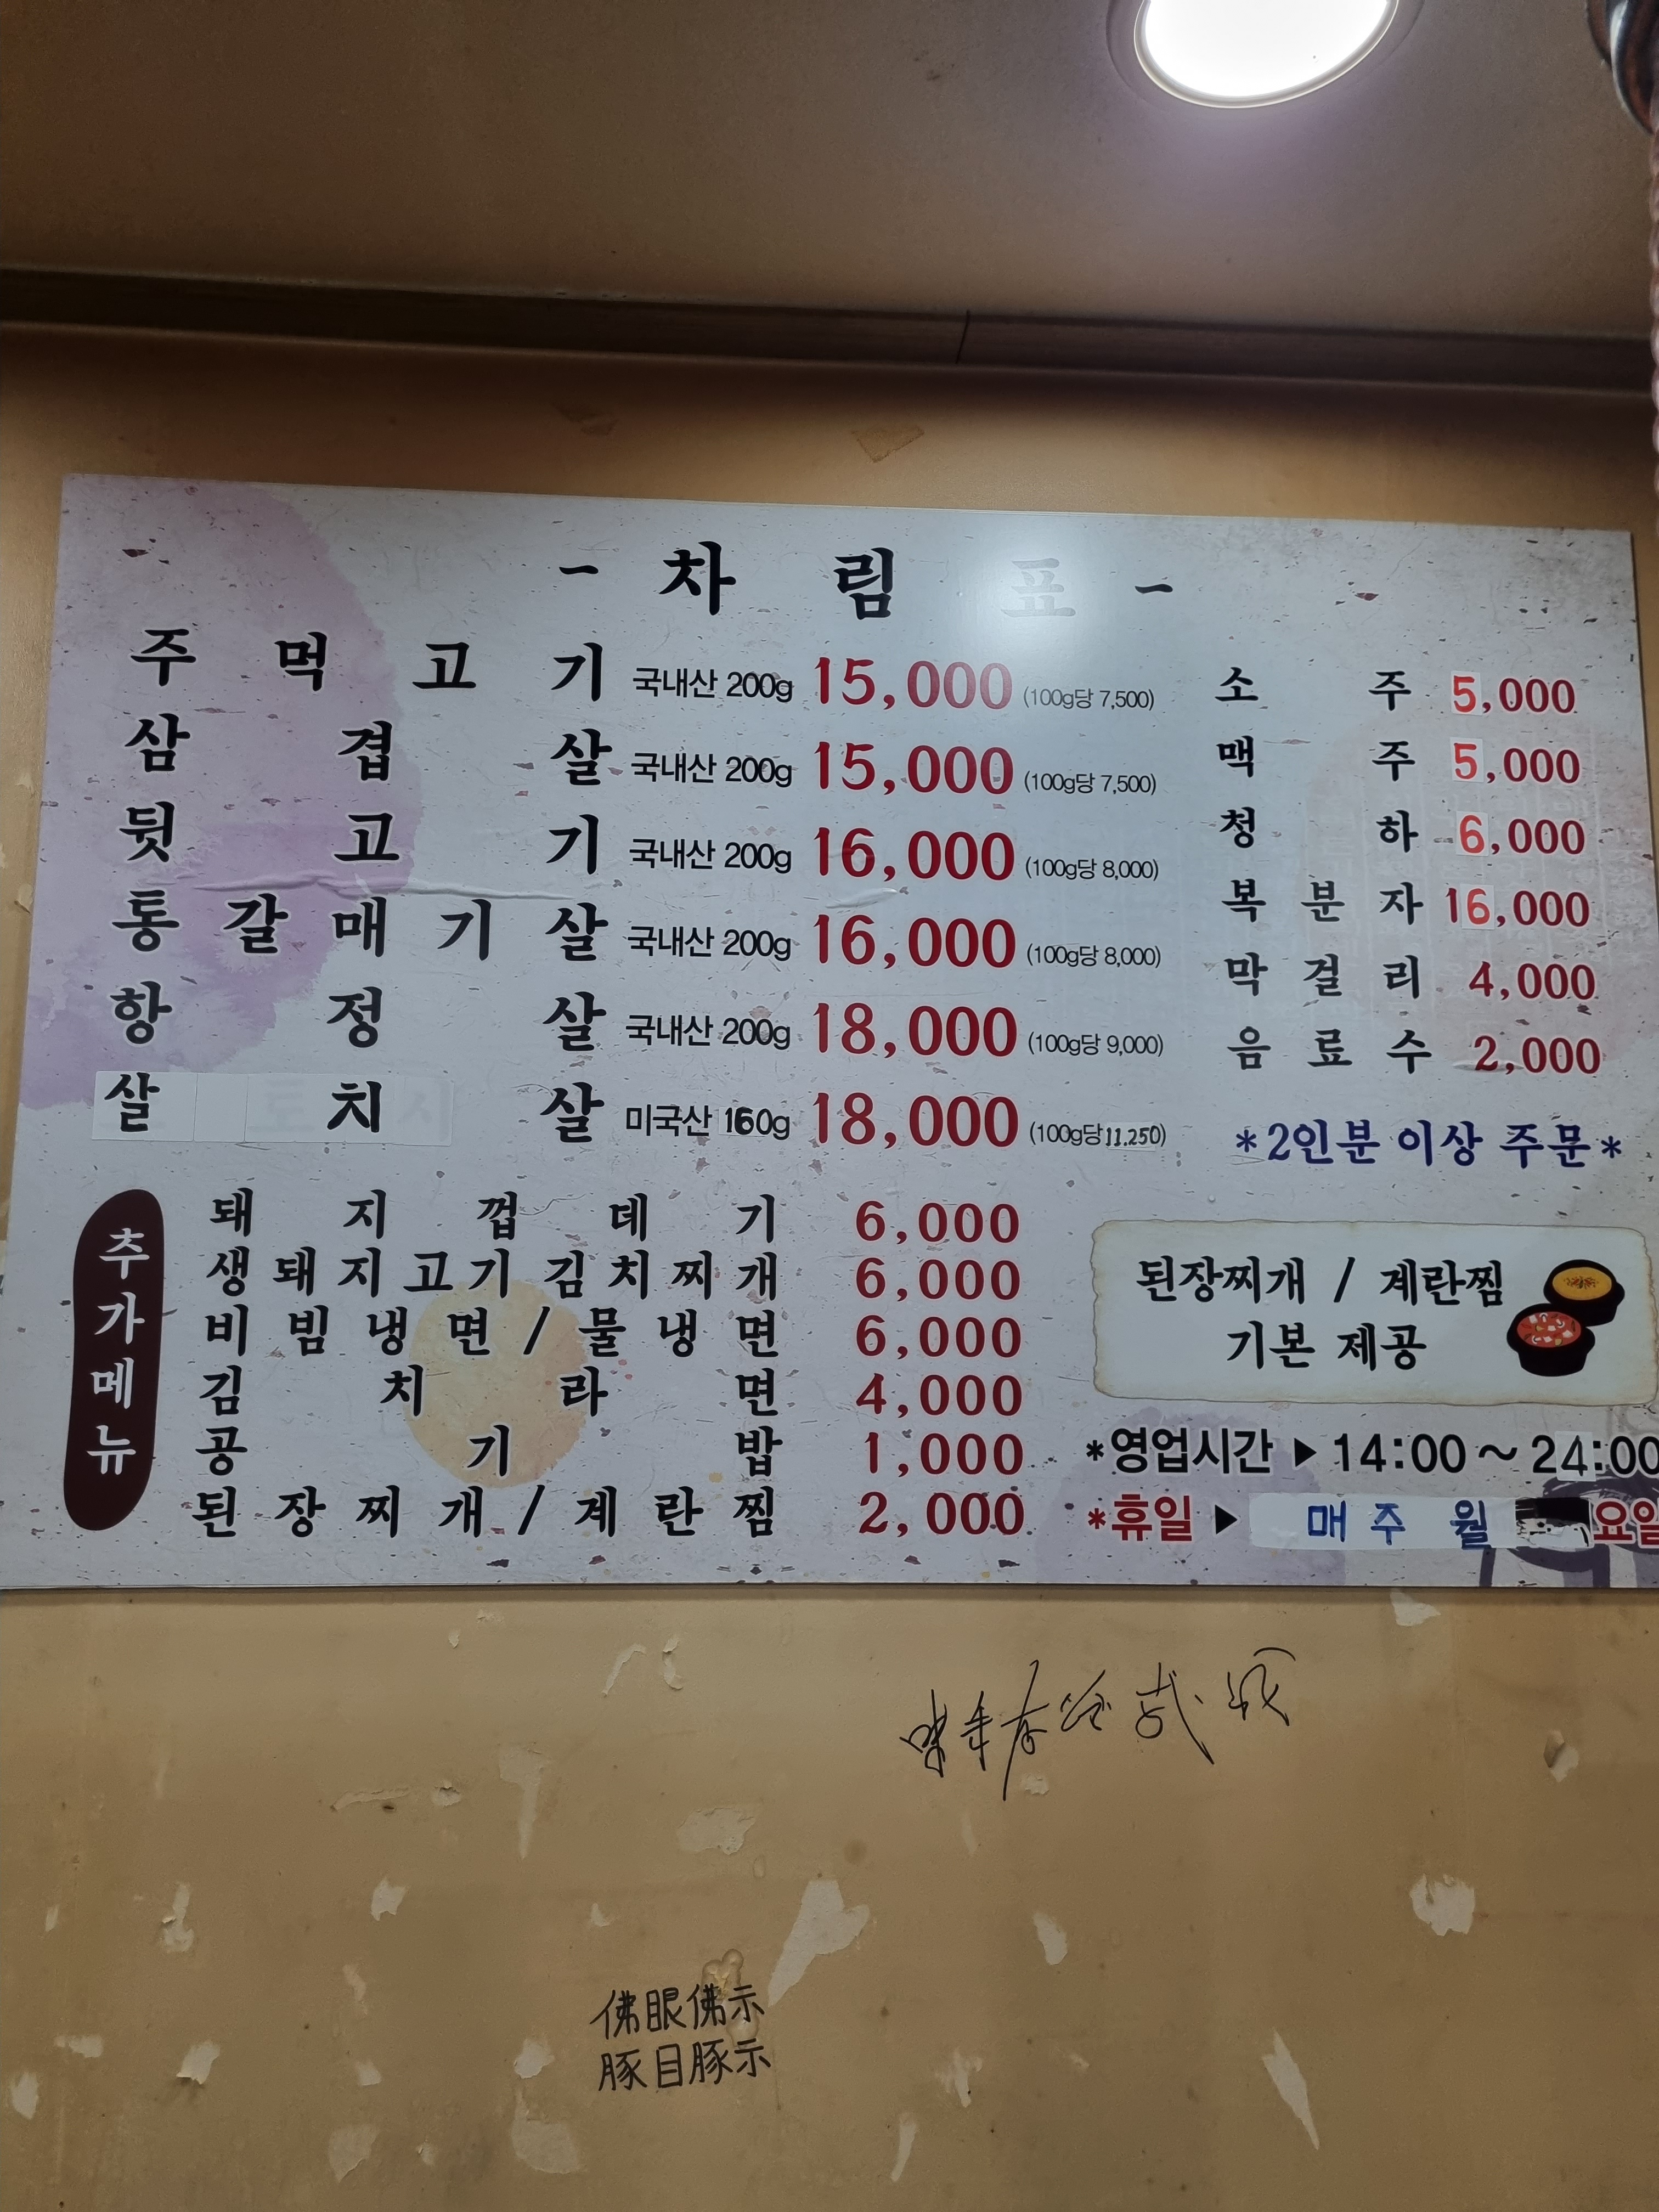 - 차림표 -
주먹고기 국내산 200g 15,000 (100g당 7,500)
삼겹살 국내산 200g 15,000 (100g당 7,500)
뒷고기 국내산 200g 16,000 (100g당 8,000)
통갈매기살 국내산 200g 16,000 (100g당 8,000)
항정살 국내산 200g 18,000 (100g당 9,000)
살치살 미국산 160g 18,000 (100g당 11.250)
소주 5,000
맥주 5,000
청하 6,000
복분자 16,000
막걸리 4,000
음료수 2,000
*2인분 이상 주문*
추가메뉴
돼지껍데기 6,000
생돼지고기 김치찌개 6,000
비빔냉면/물냉면 6,000
김치라면 4,000
공기밥 1,000
된장찌개/계란찜 2,000
된장찌개 / 계란찜
기본 제공
*영업시간 ▶ 14:00 ~ 24:00
*휴일 ▶ 매주 월 요일
佛眼佛示
豚目豚示